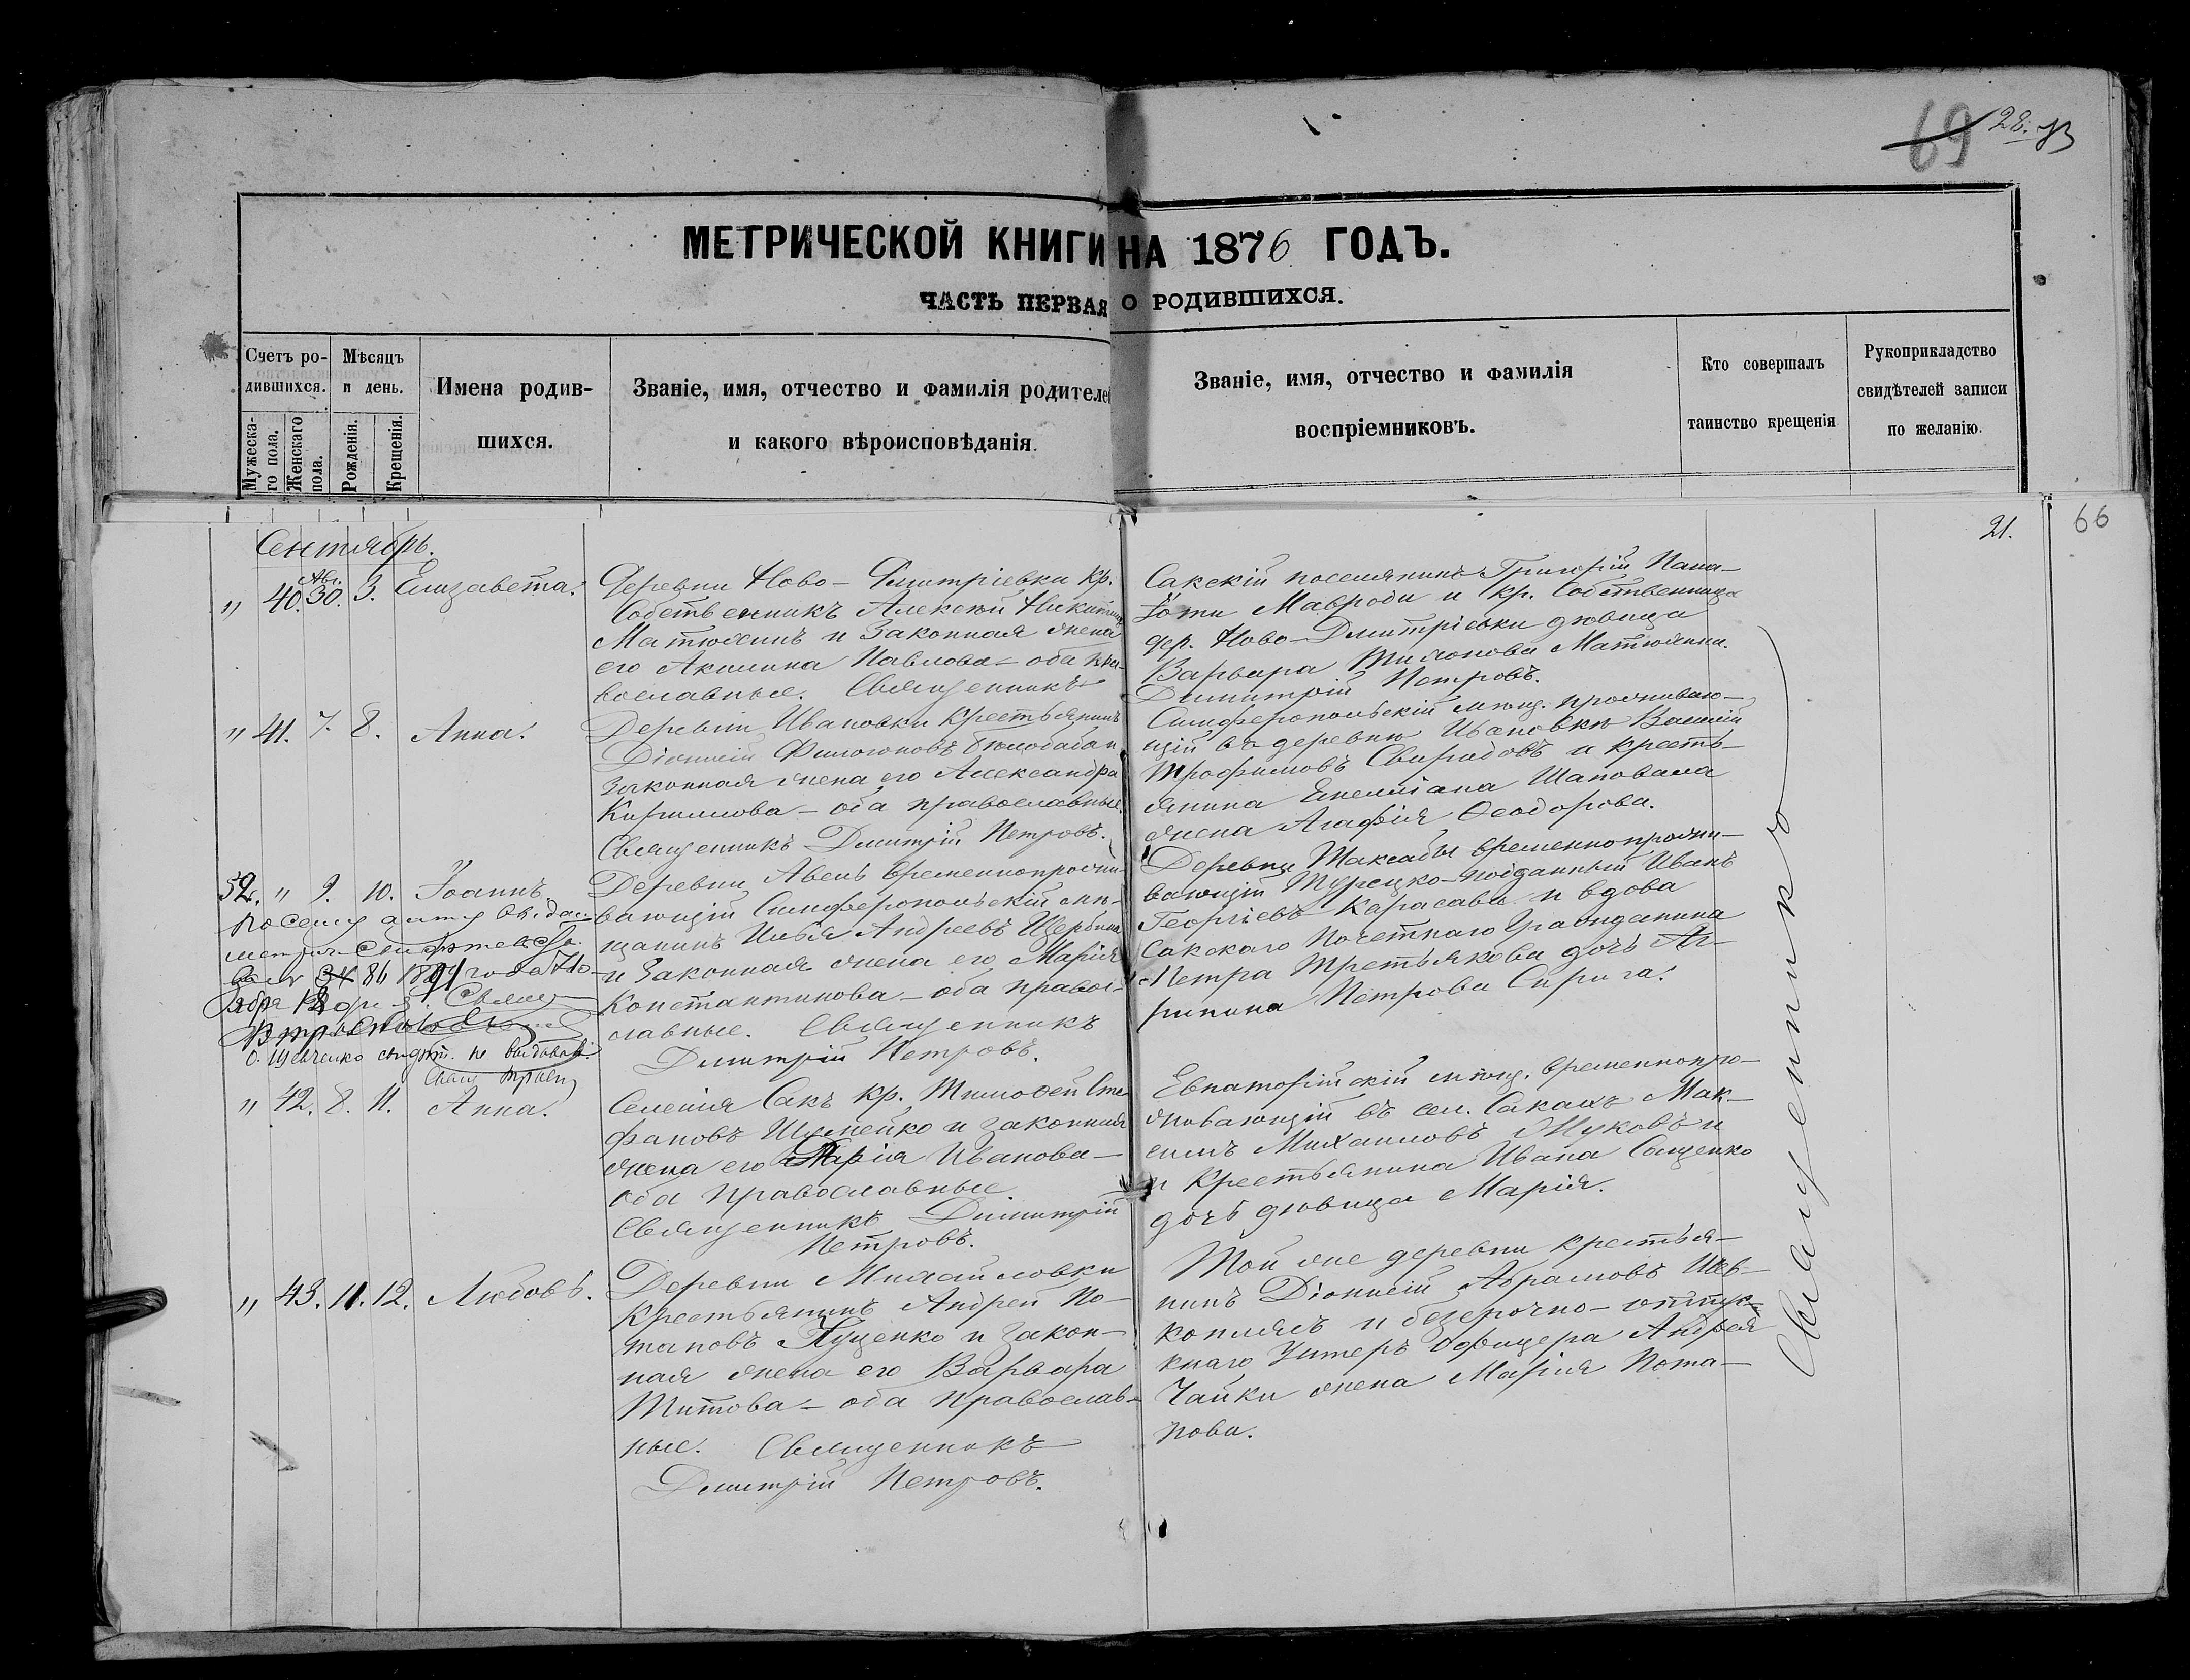 69 28.
МЕТРИЧЕСКОЙ КНИГИ НА 1876 ГОДЪ.
ЧАСТЬ ПЕРВАЯ О РОДИВШИХСЯ.
Счетъ ро-
дившихся.
Мужеска-
го пола.
Женскаго
пола.
Мѣсяцъ
и день.
Рожденія.
Крещенія.
Имена родив-
шихся.
Званіе, имя, отчество и фамилія родителей
и какого вѣроисповѣданія.
Званіе, имя, отчество и фамилія
воспріемниковъ.
Кто совершалъ
таинство крещенія
Рукоприкладство
свидѣтелей записи
по желанію.
21. 66
Сентябрь.
Авг.
" 40. 30. 3. Елизавета.
Деревни Ново-Дмитріевки кр.
Собственникъ Алексѣй Никитинъ
Матюхинъ и законная жена
его Акилина Павлова - оба пра-
вославные. Священникъ
Димитрій Петровъ.
Сакскій поселянинъ Григорій Пана-
іоти Мавроди и кр. Собственница
дер. Ново-Дмитріевки дѣвица
Варвара Матюхина.
" 41. 7. 8. Анна.
Деревни Ивановки крестьянинъ
Діонисій Филоновъ
законная жена его Александра
Кириллова - оба православные.
Священникъ Дмитрій Петровъ.
Симферопольскій мѣщ. проживаю-
щій въ деревни Ивановки Василій
Трофимовъ Свиридовъ и кресть-
янина Емелiана Шаповала
жена Агафія Ѳеодорова.
52. " 9. 10. Іоаннъ.
По сему акту выдан
метрич. свидѣтельство
за № 86 1891 года
Свящ.
О. Шевченко свидѣт. не выдавалъ
Свящ.
Деревни Авель временнопрожи-
вающій Симферопольскій мѣ-
щанинъ Илья Андреевъ Щербина
и законная жена его Марія
Константинова - оба правос-
лавные. Священникъ
Дмитрій Петровъ.
Деревни временнопрожи-
вающій Турецко-подданный Иванъ
Георгіевъ Карасавъ и вдова
Сакскаго Почетнаго Гражданина
Петра Третьякова дочь Аг-
рипина Петрова Сирига.
" 42. 8. 11. Анна.
Селенія Сакъ кр. Тимоѳей Сте-
фановъ и законная
жена его Марія Иванова -
оба православные.
Священникъ Димитрій
Петровъ.
Евпаторійскій мѣщ. временнопро-
живающій въ сел. Сакахъ Мак-
симъ Михаиловъ Жуковъ и
и крестьянина Ивана Сащенко
дочь дѣвица Марія.
" 43. 11. 12. Любовь.
Деревни Михайловки
крестьянинъ Андрей По-
таповъ Куценко и закон-
ная жена его Варвара
Титова - оба православ-
ные. Священникъ
Дмитрій Петровъ.
Той же деревни крестья-
нинъ Діонисій Абрамовъ Шев-
коплясъ и безсрочно-отпус-
кнаго Унтеръ Офицера Андрея
Чайки жена Марія Пота-
пова.
Священникъ